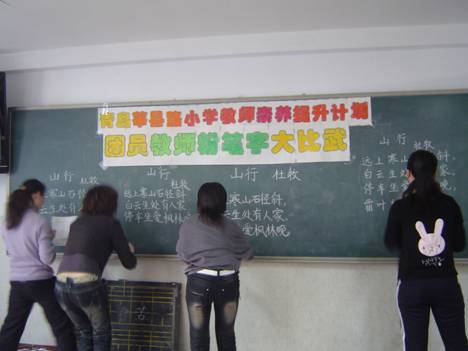 青岛莘县路小学教师素养提升计划
团员教师粉笔字大比武
山行
杜牧
寒山石径
生处
山行
杜牧
远上寒山石径斜，
白云生处有人家。
停车坐爱枫林
山行 杜牧
山石径斜，
生处有人家。
爱枫林晚，
山行
杜牧
远上寒山
白云生处有
停车坐爱枫
霜叶